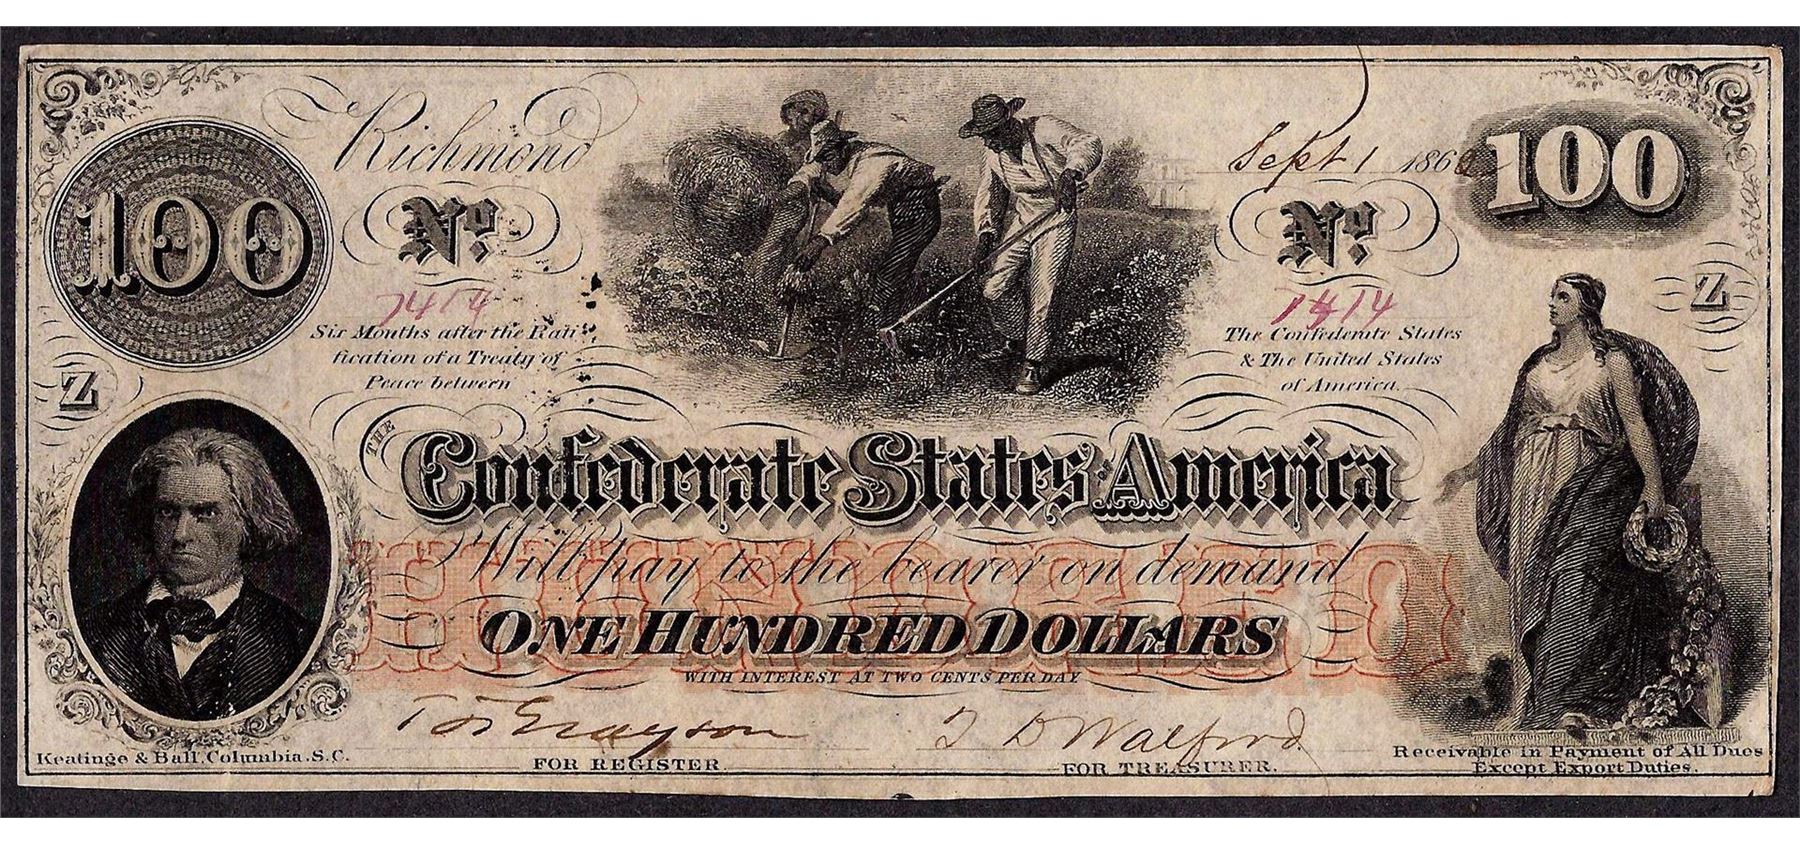 Richmond Sept 1 1862
100 100
No. No.
7414 7414
Z
Six Months after the Rati-
fication of a Treaty of
Peace between
The Confederate States
& The United States
of America.
Z
THE
Confederate States America
Will pay to the bearer on demand
HUNDRED
ONE HUNDRED DOLLARS
WITH INTEREST AT TWO CENTS PER DAY
Grayson
Walford
FOR REGISTER
FOR TREASURER.
Keatinge & Ball, Columbia, S.C.
Receivable in Payment of All Dues
Except Export Duties.